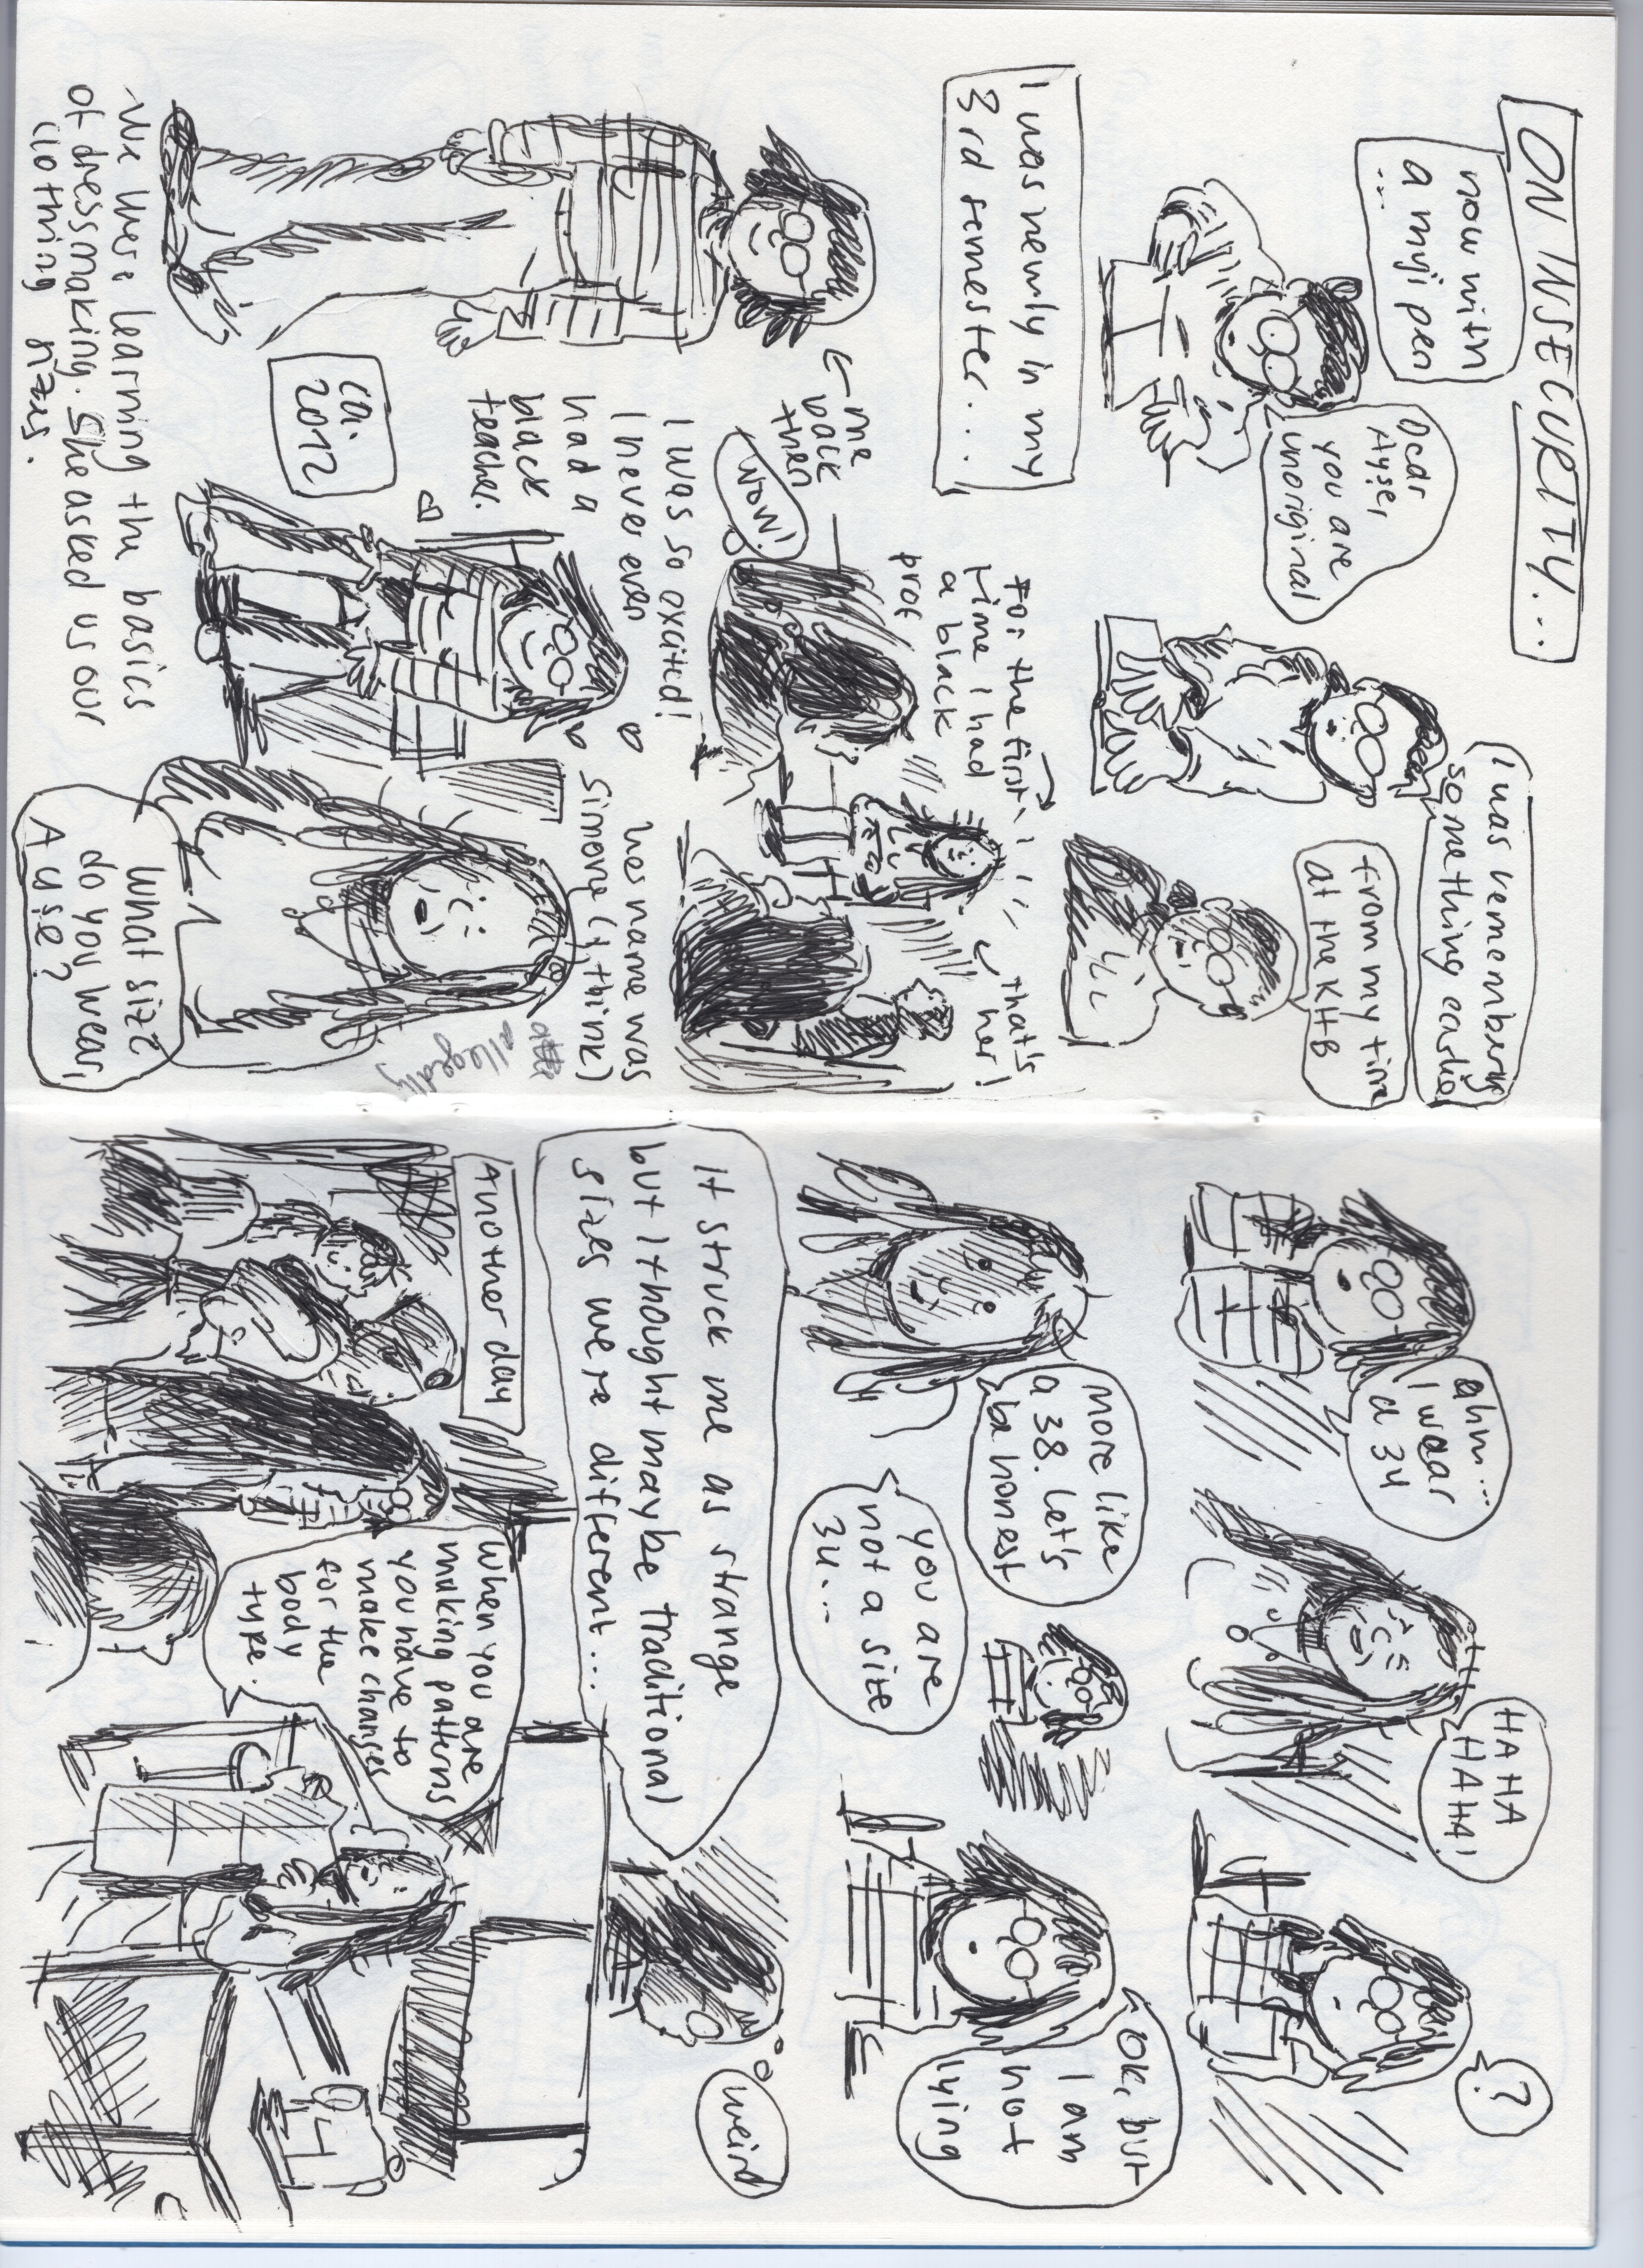 ON INSECURITY...
now with
a muji pen
...
Dear
Ayşe,
you are
unoriginal
I was remembering
something earlier
from my time
at the KHB
I was newly in my
3rd semester...
← me
back
then
For the first
time I had
a black
prof
that's
her!
WOW!
I was so excited!
I never even
had a
black
teacher.
ca.
2012
her name was
Simone (I think)
allegedly
-We were learning the basics
of dressmaking. She asked us our
clothing sizes.
What size
do you wear,
Ayşe?
ahm...
I wear
a 34
HAHA
HAHA!
?
more like
a 38. Let's
be honest
you are
not a size
34...
Ok, but
I am
not
lying
It struck me as strange
but I thought maybe traditional
sizes were different...
weird
Another day
When you are
making patterns
you have to
make changes
for the
body
type.